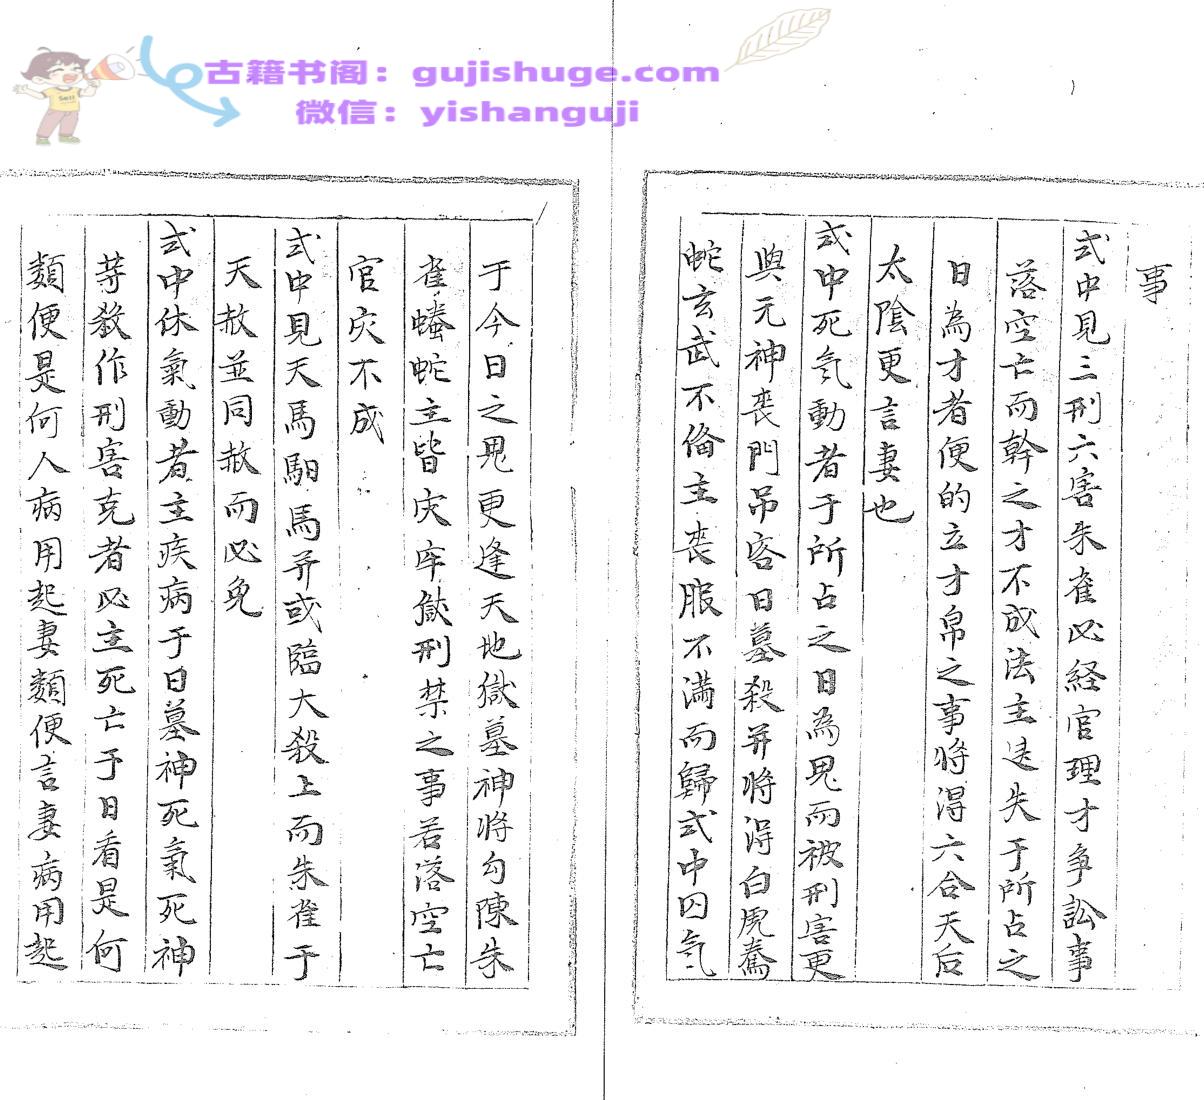 古籍书阁：gujishuge.com
微信：yishanguji
事
式中見三刑六害朱雀必経官理才争訟事
落空亡而幹之才不成法主迯失于所占之
日為才者便的立才帛之事将得六合天后
太陰更言妻也
式中死氣動者于所占之日為鬼而被刑害更
與元神喪門吊客日墓殺并将得白虎騰
蛇玄武不俻主喪服不満而歸式中囚氣
于今日之鬼更逢天地獄墓神将勾陳朱
雀螣蛇主皆灾牢獄刑禁之事若落空亡
官灾不成
式中見天馬馹馬并或臨大殺上而朱雀于
天赦並同赦而必免
式中休氣動者主疾病于日墓神死氣死神
等殺作刑害克者必主死亡于日看是何
類便是何人病用起妻類便言妻病用起